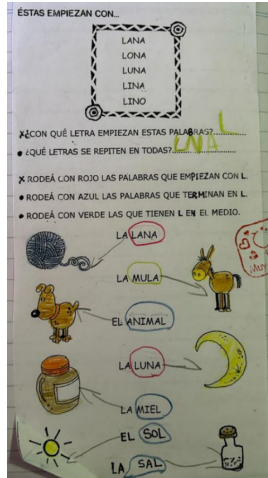 ÉSTAS EMPIEZAN CON...
LANA
LONA
LUNA
LINA
LINO
¿CON QUÉ LETRA EMPIEZAN ESTAS PALABRAS?......L
¿QUÉ LETRAS SE REPITEN EN TODAS?......LNA
RODEÁ CON ROJO LAS PALABRAS QUE EMPIEZAN CON L.
RODEÁ CON AZUL LAS PALABRAS QUE TERMINAN EN L.
RODEÁ CON VERDE LAS QUE TIENEN L EN EL MEDIO.
LA LANA
LA MULA
EL ANIMAL
LA LUNA
LA MIEL
EL SOL
LA SAL